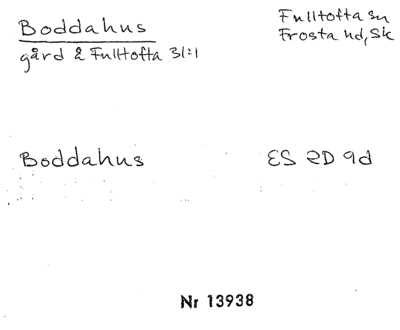 Boddahus
Fulltofta sn
Frosta hd, Sk
gård å Fulltofta 31:1
Boddahus
ES 2D 9d
Nr 13938